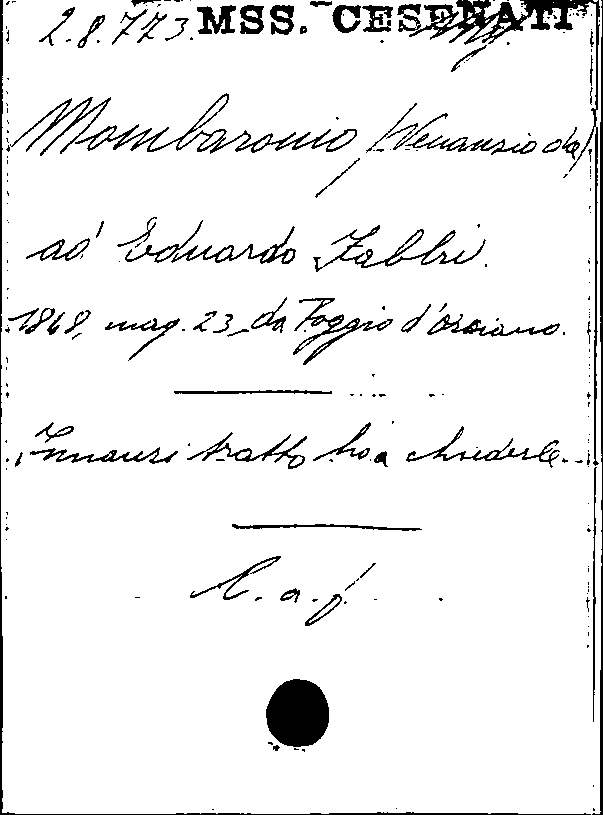 2.8.773. MSS. CESENATI
Mombaronio (Venanzio da)
ad Eduardo Fabbri.
1848, mag. 23, da Poggio d'Orsiano.
Innanzi tratto ho a chiederle
L. a. f.